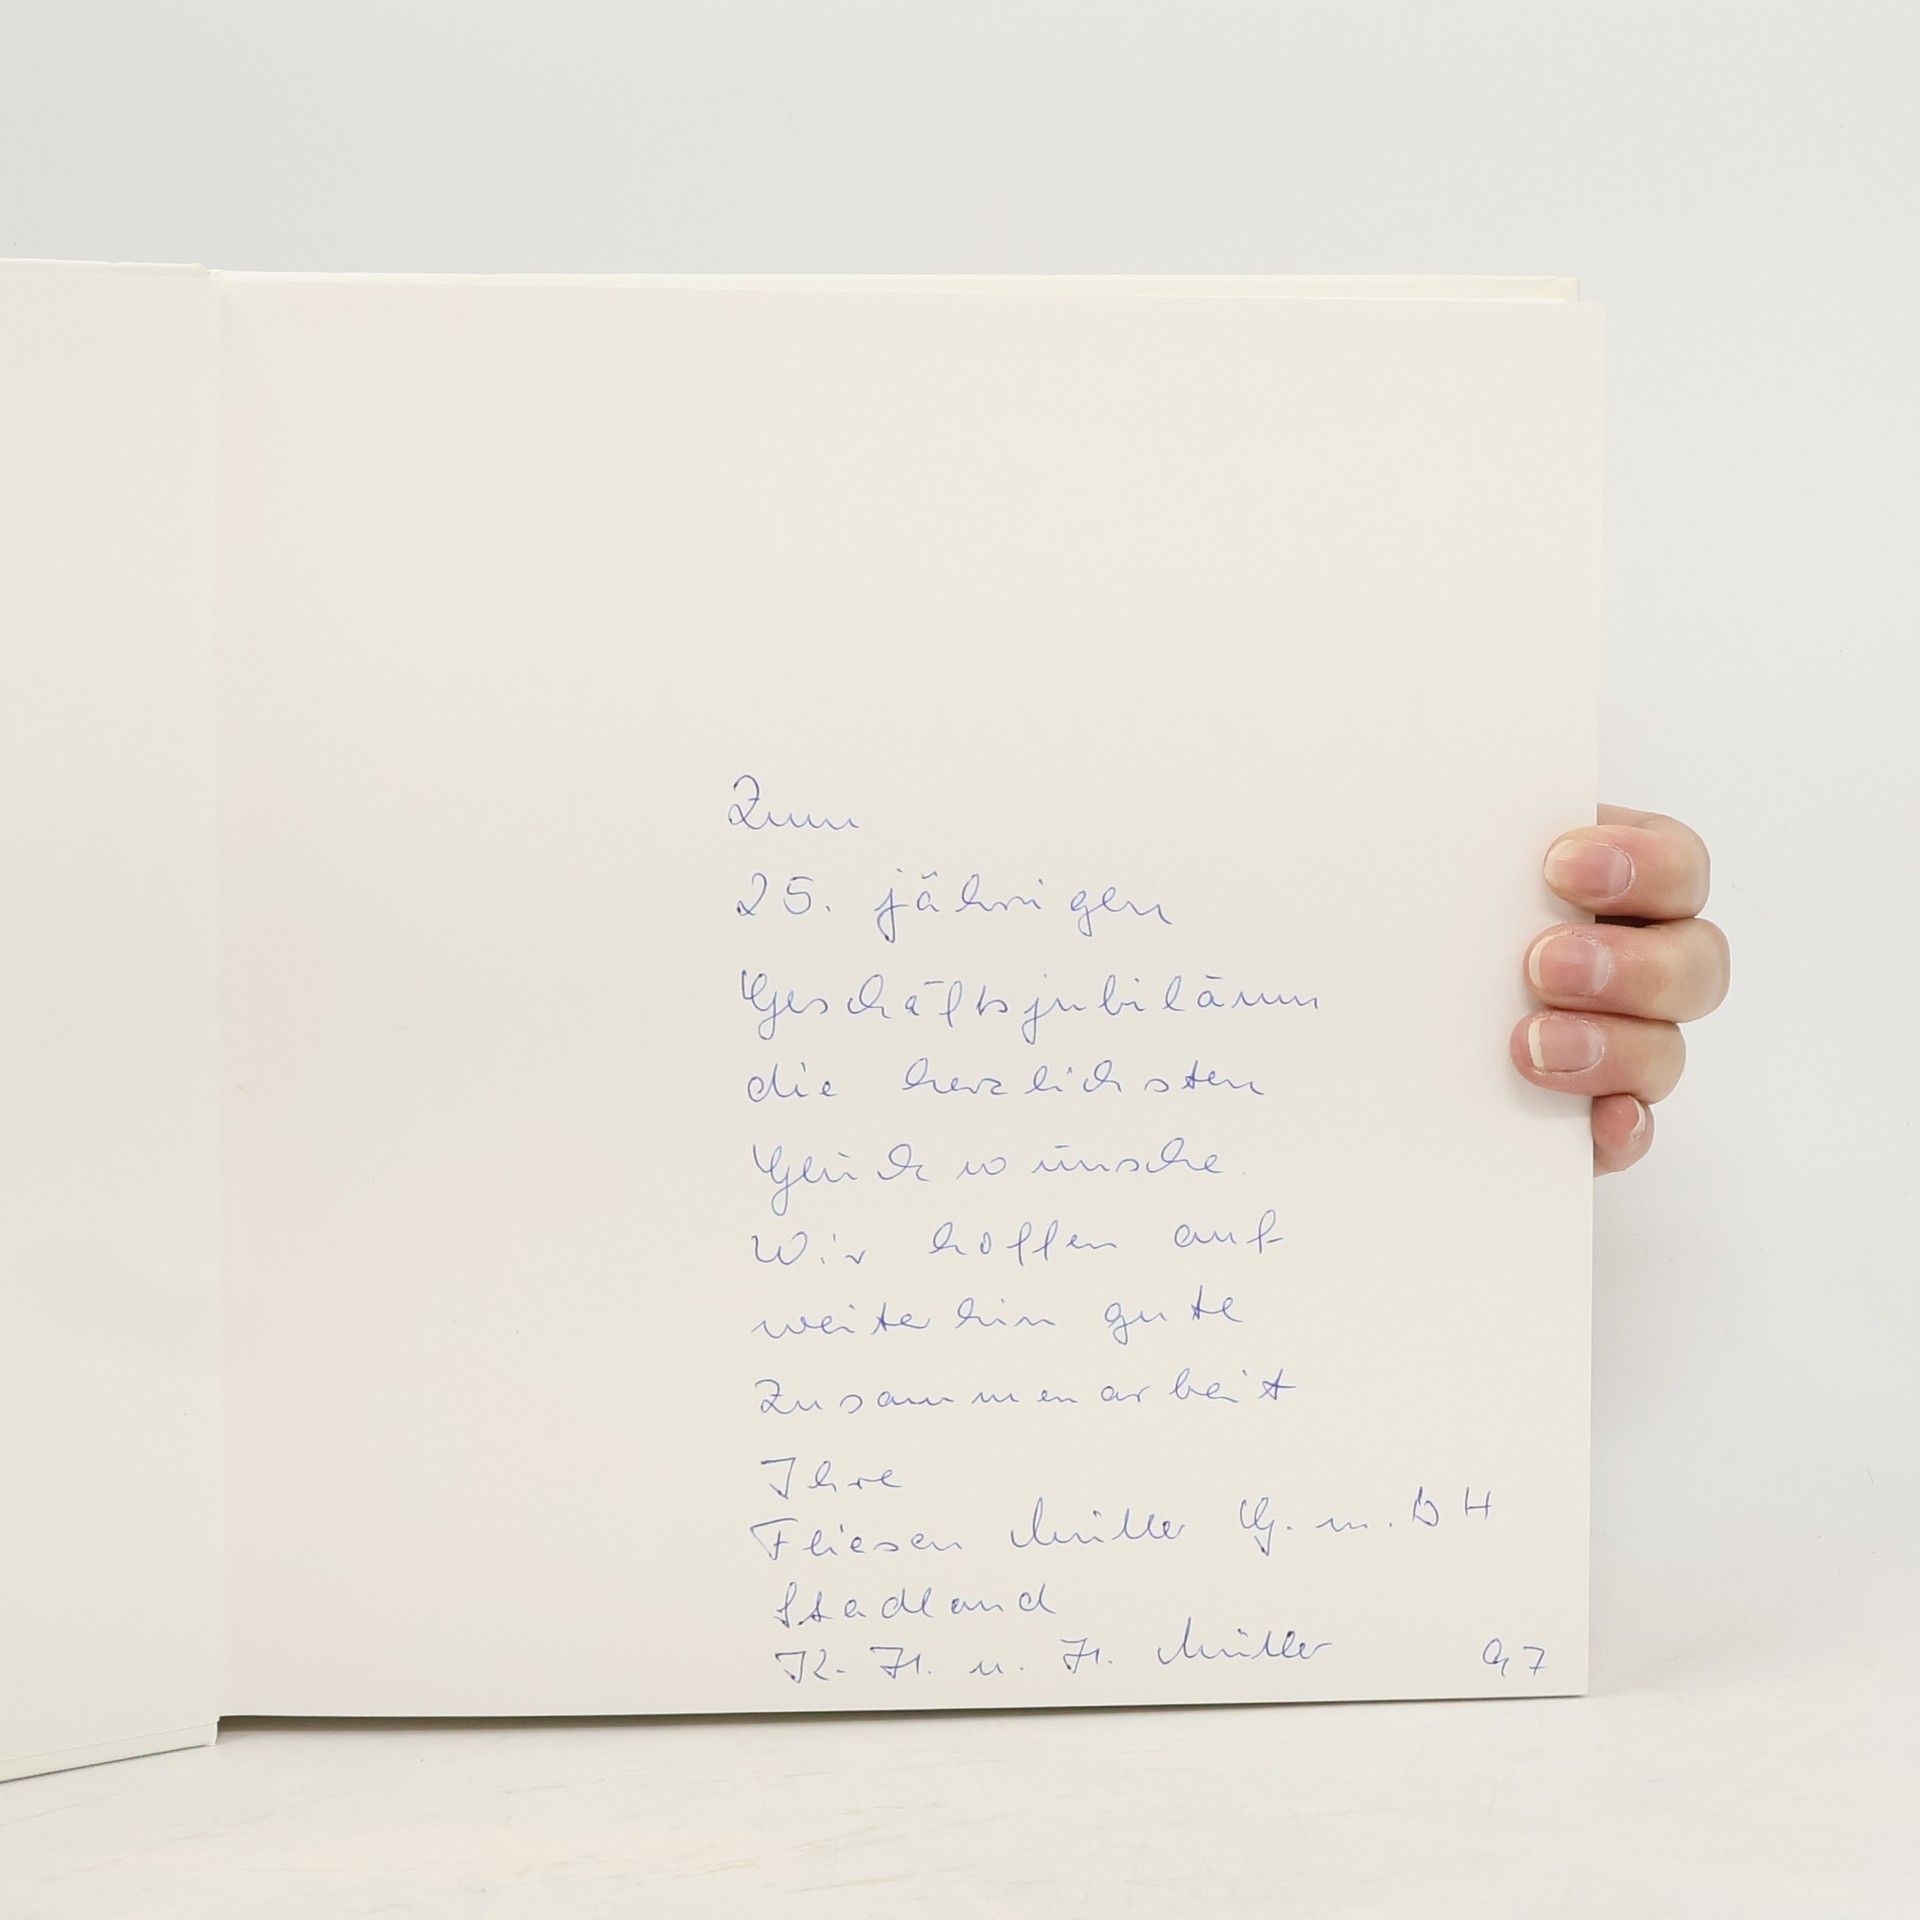 Zum
25. jährigen
Geschäftsjubiläum
die herzlichsten
Glückwünsche
Wir hoffen auf
weiterhin gute
Zusammenarbeit
Ihre
Fliesen Müller G.m.bH
Stadland
K.-H. u. H. Müller 97